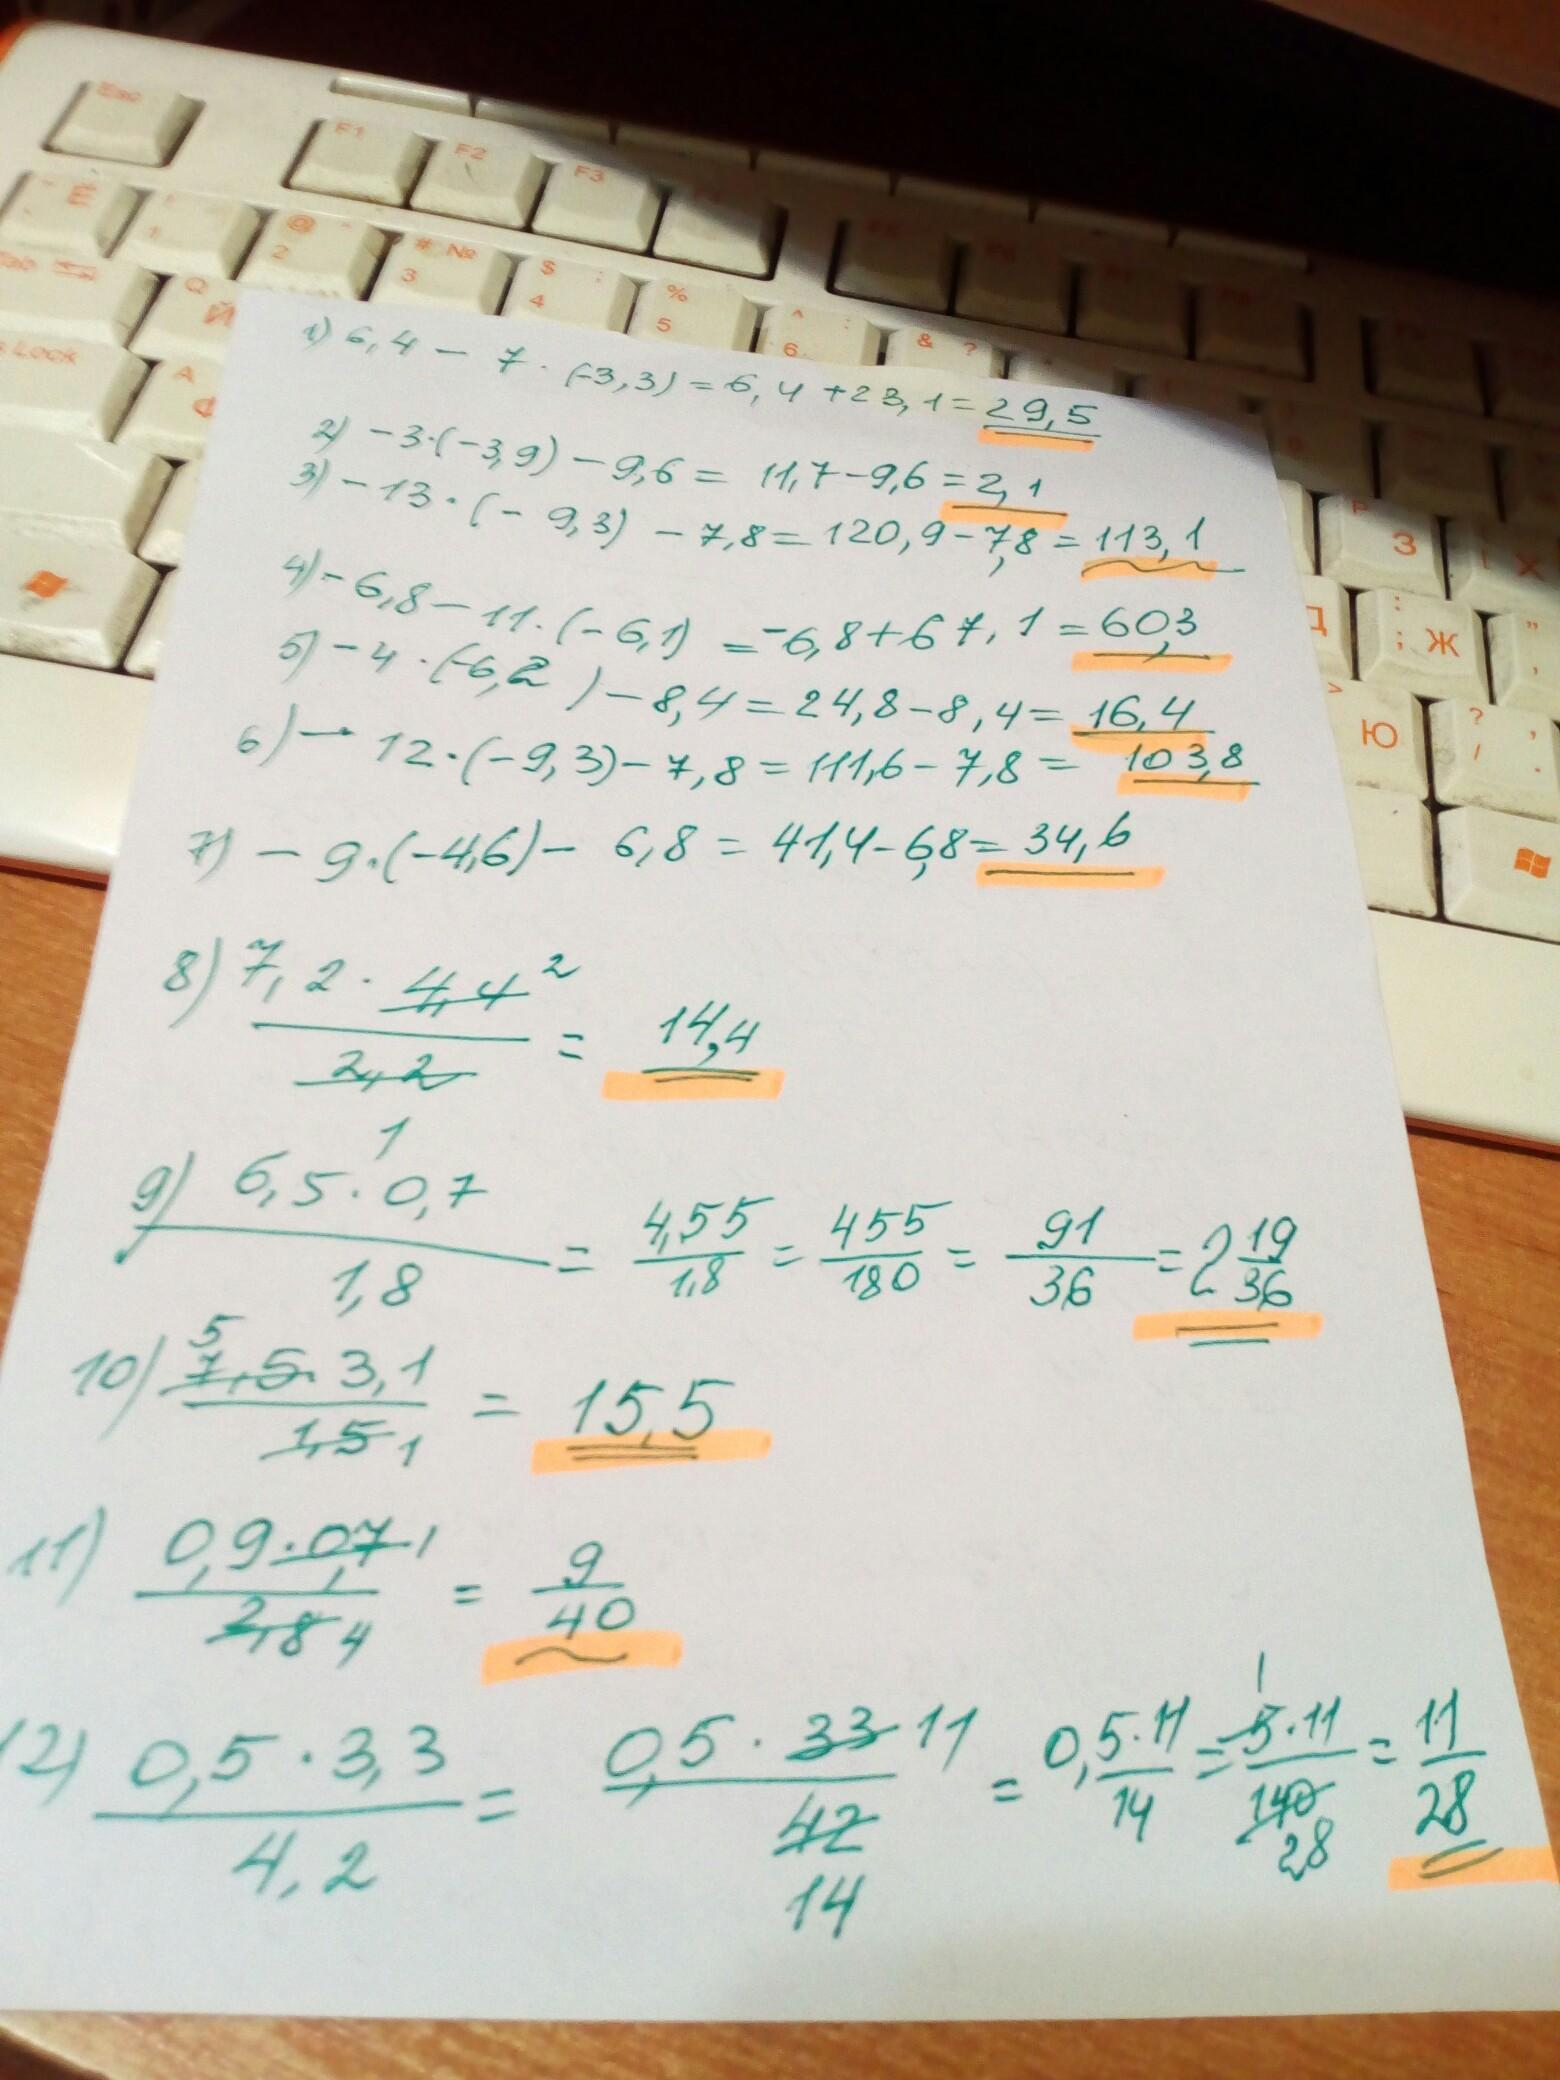 Esc F1 F2 F3
~ Ё ! 1 @ " 2 # № 3 $ ; 4 % 5 ^ : 6 & ?
Tab Q Й
Lock A Ф
Р З Х
Д : ; Ж "
> Ю ? / , .
1) 6,4 - 7 · (-3,3) = 6,4 + 23,1 = 29,5
2) -3·(-3,9) - 9,6 = 11,7 - 9,6 = 2,1
3) -13·(-9,3) - 7,8 = 120,9 - 7,8 = 113,1
4) -6,8 - 11·(-6,1) = -6,8 + 67,1 = 60,3
5) -4·(-6,2) - 8,4 = 24,8 - 8,4 = 16,4
6) - 12·(-9,3) - 7,8 = 111,6 - 7,8 = 103,8
7) - 9·(-4,6) - 6,8 = 41,4 - 6,8 = 34,6
8) 7,2 · 4,4 2 / 2,2 1 = 14,4
9) 6,5 · 0,7 / 1,8 = 4,55 / 1,8 = 455 / 180 = 91 / 36 = 2 19/36
10) 5 7,5 · 3,1 / 1,5 1 = 15,5
11) 0,9 · 0,7 1 / 2,8 4 = 9 / 40
12) 0,5 · 3,3 / 4,2 = 0,5 · 33 11 / 42 14 = 0,5 · 11 / 14 = 1 5 · 11 / 140 28 = 11 / 28